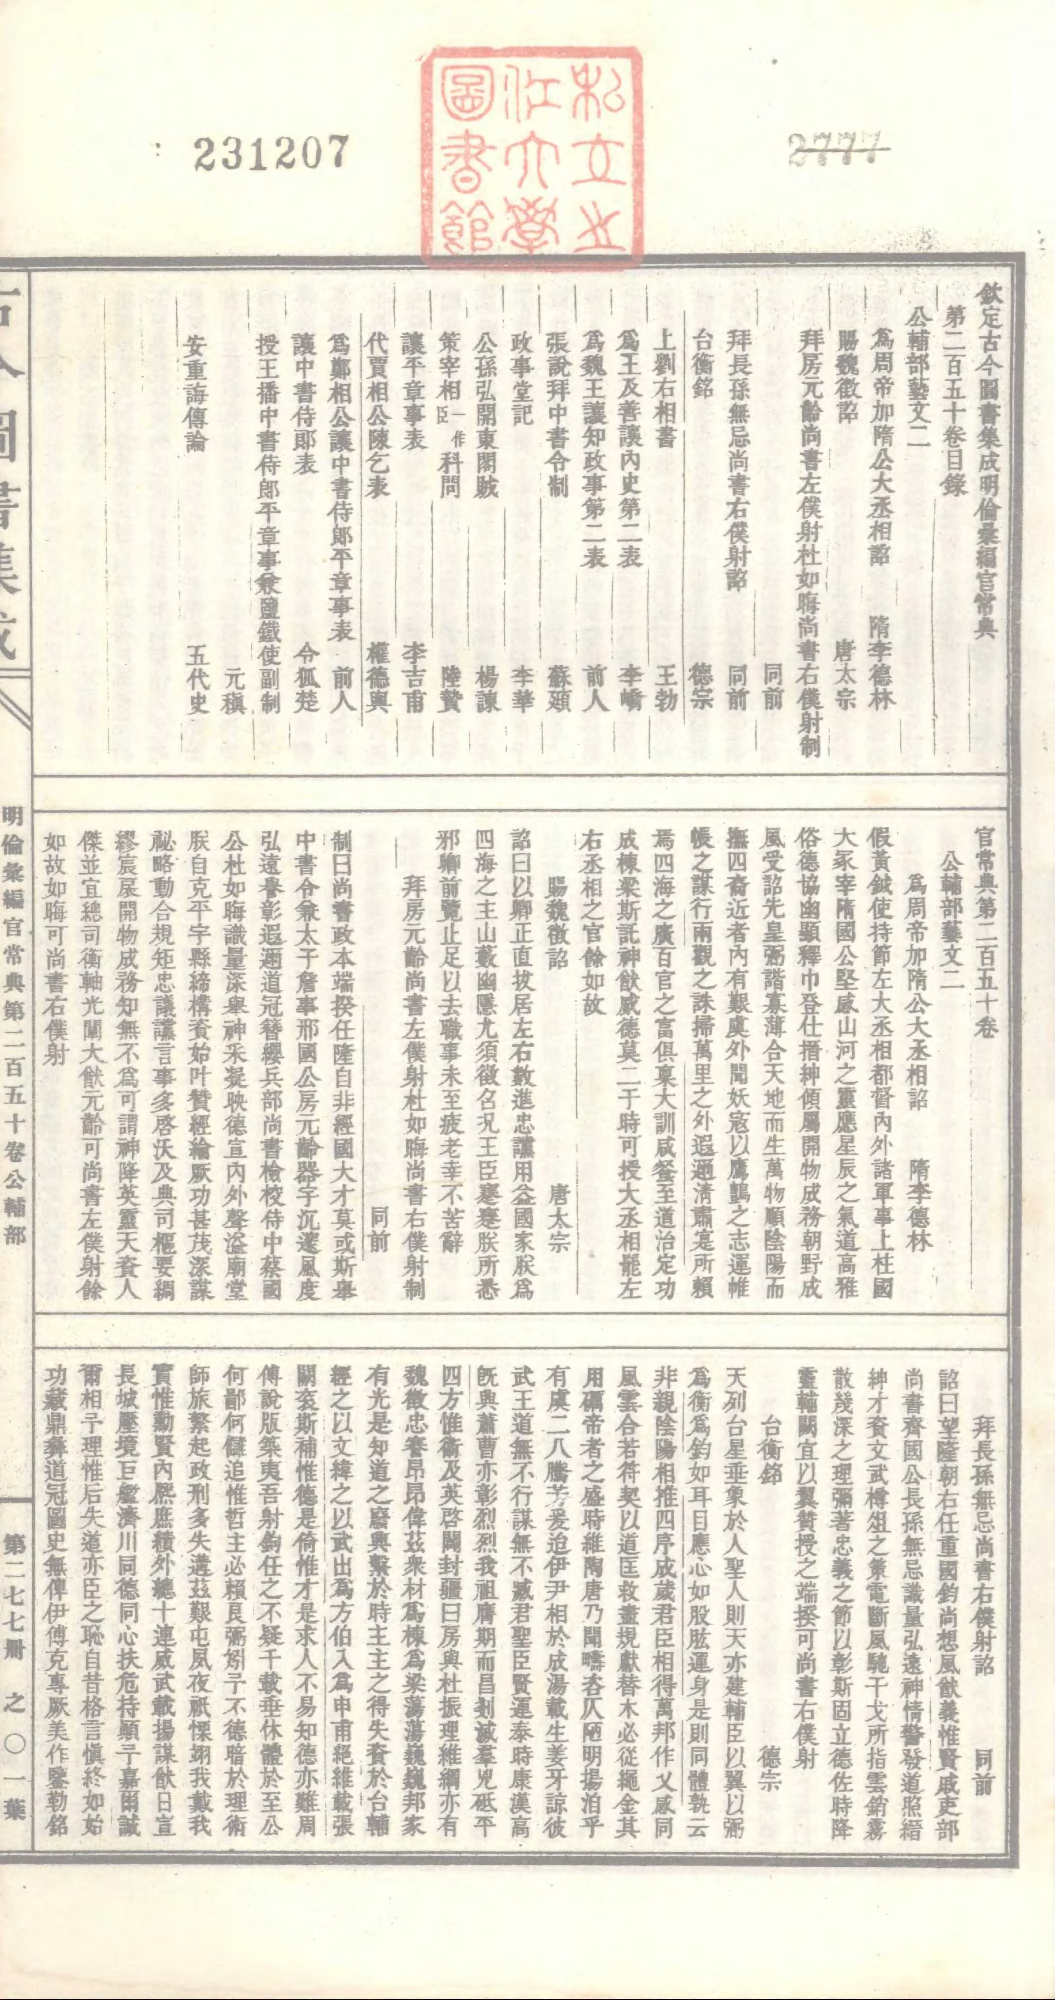 231207
2777
私立輔
仁大學
圖書館
欽定古今圖書集成明倫彙編官常典
第二百五十卷目錄
公輔部藝文二
爲周帝加隋公大丞相詔 隋李德林
賜魏徵詔 唐太宗
拜房元齡尚書左僕射杜如晦尚書右僕射制
同前
拜長孫無忌尚書右僕射詔 同前
台衡銘 德宗
上劉右相書 王勃
爲王及善讓內史第二表 李嶠
爲魏王讓知政事第二表 前人
張說拜中書令制 蘇頲
政事堂記 李華
公孫弘開東閣賦 楊諫
策宰相一作臣科問 陸贄
讓平章事表 李吉甫
代賈相公陳乞表 權德輿
爲鄭相公讓中書侍郞平章事表 前人
讓中書侍郞表 令狐楚
授王播中書侍郞平章事兼鹽鐵使副制
元稹
安重誨傳論 五代史
官常典第二百五十卷
公輔部藝文二
爲周帝加隋公大丞相詔 隋李德林
假黃鉞使持節左大丞相都督內外諸軍事上柱國
大冢宰隋國公堅感山河之靈應星辰之氣道高雅
俗德協幽顯釋巾登仕搢紳傾屬開物成務朝野成
風受詔先皇弼諧寡薄合天地而生萬物順陰陽而
撫四裔近者內有艱虞外聞妖寇以鷹鸇之志運帷
帳之謀行兩觀之誅掃萬里之外遐邇清肅寔所賴
焉四海之廣百官之富俱稟大訓咸餐至道治定功
成棟梁斯託神猷盛德莫二于時可授大丞相罷左
右丞相之官餘如故
賜魏徵詔 唐太宗
詔曰以卿正直拔居左右數進忠讜用益國家朕爲
四海之主山藪幽隱尤須徵名況王臣蹇蹇朕所悉
邪卿前覽止足以去職事未至疲老幸不苦辭
拜房元齡尚書左僕射杜如晦尚書右僕射制
同前
制曰尚書政本端揆任隆自非經國大才莫或斯舉
中書令兼太子詹事邢國公房元齡器宇沉邃風度
弘遠譽彰遐邇道冠簪纓兵部尚書檢校侍中蔡國
公杜如晦識量深舉神采凝映德宣內外聲溢廟堂
朕自克平宇縣締構資始叶贊經綸厥功甚茂深謀
祕略動合規矩忠議讜言事多啓沃及典司樞要綢
繆宸扆開物成務知無不爲可謂神降英靈天資人
傑並宜總司衡軸光闡大猷元齡可尚書左僕射餘
如故如晦可尚書右僕射
拜長孫無忌尚書右僕射詔 同前
詔曰望隆朝右任重國鈞尚想風猷義惟賢戚吏部
尚書齊國公長孫無忌識量弘遠神情警發道照縉
紳才資文武樽俎之策電斷風馳干戈所指雲銷霧
散幾深之理彌著忠義之節以彰斯固立德佐時降
靈輔闕宜以翼贊授之端揆可尚書右僕射
台衡銘 德宗
天列台星垂象於人聖人則天亦建輔臣以翼以弼
爲衡爲鈞如耳目應心如股肱運身是則同體孰云
非親陰陽相推四序成歲君臣相得萬邦作乂感同
風雲合若符契以道匡救盡規獻替木必從繩金其
用礪帝者之盛時維陶唐乃聞疇咨仄陋明揚洎乎
有虞二八騰芳爰迨伊尹相於成湯載生姜牙諒彼
武王道無不行謀無不臧君聖臣賢運泰時康漢高
旣興蕭曹亦彰烈烈我祖膺期而昌剗滅羣兇砥平
四方惟衞及英啓闢封疆曰房與杜振理維綱亦有
魏徵忠謇昂昂偉茲衆材爲棟爲梁蕩蕩巍巍邦家
有光是知道之廢興繫於時主主之得失資於台輔
經之以文緯之以武出爲方伯入爲申甫絕維載張
闕袞斯補惟德是倚惟才是求人不易知德亦難周
傅說版築夷吾射鉤任之不疑千載垂休體於至公
何鄙何讎追惟哲主必賴良弼矧予不德暗於理術
師旅繁起政刑多失遘茲艱屯夙夜祇慄翊我戴我
實惟勳賢內熙庶績外總十連威武載揚謀猷日宣
長城壓境巨艦濟川同德同心扶危持顚予嘉爾誠
爾相予理惟后失道亦臣之恥自昔格言愼終如始
功藏鼎彝道冠圖史無俾伊傅克專厥美作鑒勒銘
古今圖書集成
明倫彙編官常典第二百五十卷公輔部
第二七七冊 之〇一葉